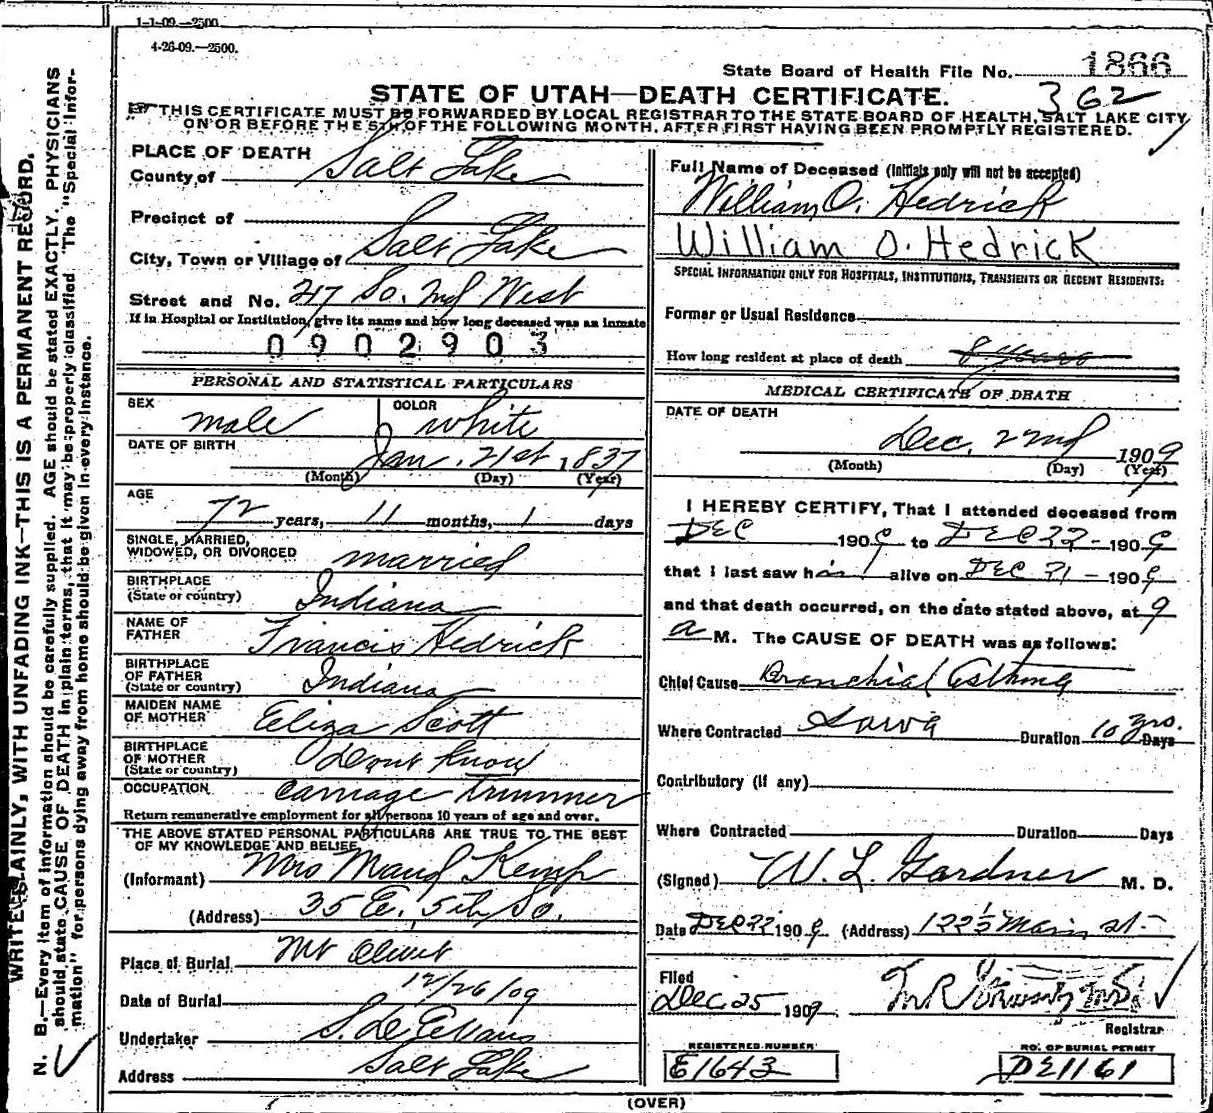 1-1-09.—2500.
4-26-09.—2500.
State Board of Health File No. 1866
362
STATE OF UTAH—DEATH CERTIFICATE.
THIS CERTIFICATE MUST BE FORWARDED BY LOCAL REGISTRAR TO THE STATE BOARD OF HEALTH, SALT LAKE CITY
ON OR BEFORE THE 5TH OF THE FOLLOWING MONTH, AFTER FIRST HAVING BEEN PROMPTLY REGISTERED.
WRITE PLAINLY, WITH UNFADING INK—THIS IS A PERMANENT RECORD.
N. B.—Every item of information should be carefully supplied. AGE should be stated EXACTLY. PHYSICIANS
should state CAUSE OF DEATH in plain terms, that it may be properly classified. The "Special Infor-
mation" for persons dying away from home should be given in every instance.
PLACE OF DEATH
County of Salt Lake
Precinct of
City, Town or Village of Salt Lake
Street and No. 217 So. 2nd West
If in Hospital or Institution, give its name and how long deceased was an inmate
0902903
PERSONAL AND STATISTICAL PARTICULARS
SEX male COLOR white
DATE OF BIRTH Jan. 21st 1837
(Month) (Day) (Year)
AGE
72 years, 11 months, 1 days
SINGLE, MARRIED,
WIDOWED, OR DIVORCED married
BIRTHPLACE
(State or country) Indiana
NAME OF
FATHER Francis Hedrick
BIRTHPLACE
OF FATHER
(State or country) Indiana
MAIDEN NAME
OF MOTHER Eliza Scott
BIRTHPLACE
OF MOTHER
(State or country) Dont know
OCCUPATION Carriage Trimmer
Return remunerative employment for all persons 10 years of age and over.
THE ABOVE STATED PERSONAL PARTICULARS ARE TRUE TO THE BEST
OF MY KNOWLEDGE AND BELIEF
(Informant) Mrs Maud Kemp
(Address) 35 E. 5th So.
Place of Burial Mt Olivet
Date of Burial 12/26/09
Undertaker S. D. Evans
Address Salt Lake
Full Name of Deceased (Initials only will not be accepted)
William O. Hedrick
William O. Hedrick
SPECIAL INFORMATION ONLY FOR HOSPITALS, INSTITUTIONS, TRANSIENTS OR RECENT RESIDENTS:
Former or Usual Residence
How long resident at place of death 8 years
MEDICAL CERTIFICATE OF DEATH
DATE OF DEATH
Dec. 22nd 1909
(Month) (Day) (Year)
I HEREBY CERTIFY, That I attended deceased from
DEC 1909 to DEC 22- 1909
that I last saw him alive on DEC 21- 1909
and that death occurred, on the date stated above, at 9
a M. The CAUSE OF DEATH was as follows:
Chief Cause Bronchial Asthma
Where Contracted Iowa Duration 10 yrs. Days
Contributory (if any)
Where Contracted Duration Days
(Signed) W. L. Gardner M. D.
Date DEC 22 1909 (Address) 122½ Main st-
Filed
Dec 25 1909
Registrar
REGISTERED NUMBER
E1643
NO. OF BURIAL PERMIT
DE1161
(OVER)